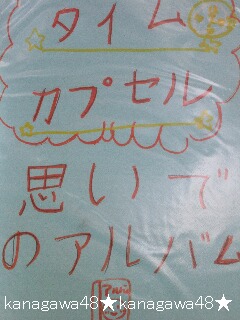 タイム
カプセル
思いで
のアルバム
アルバム
kanagawa48★kanagawa48★